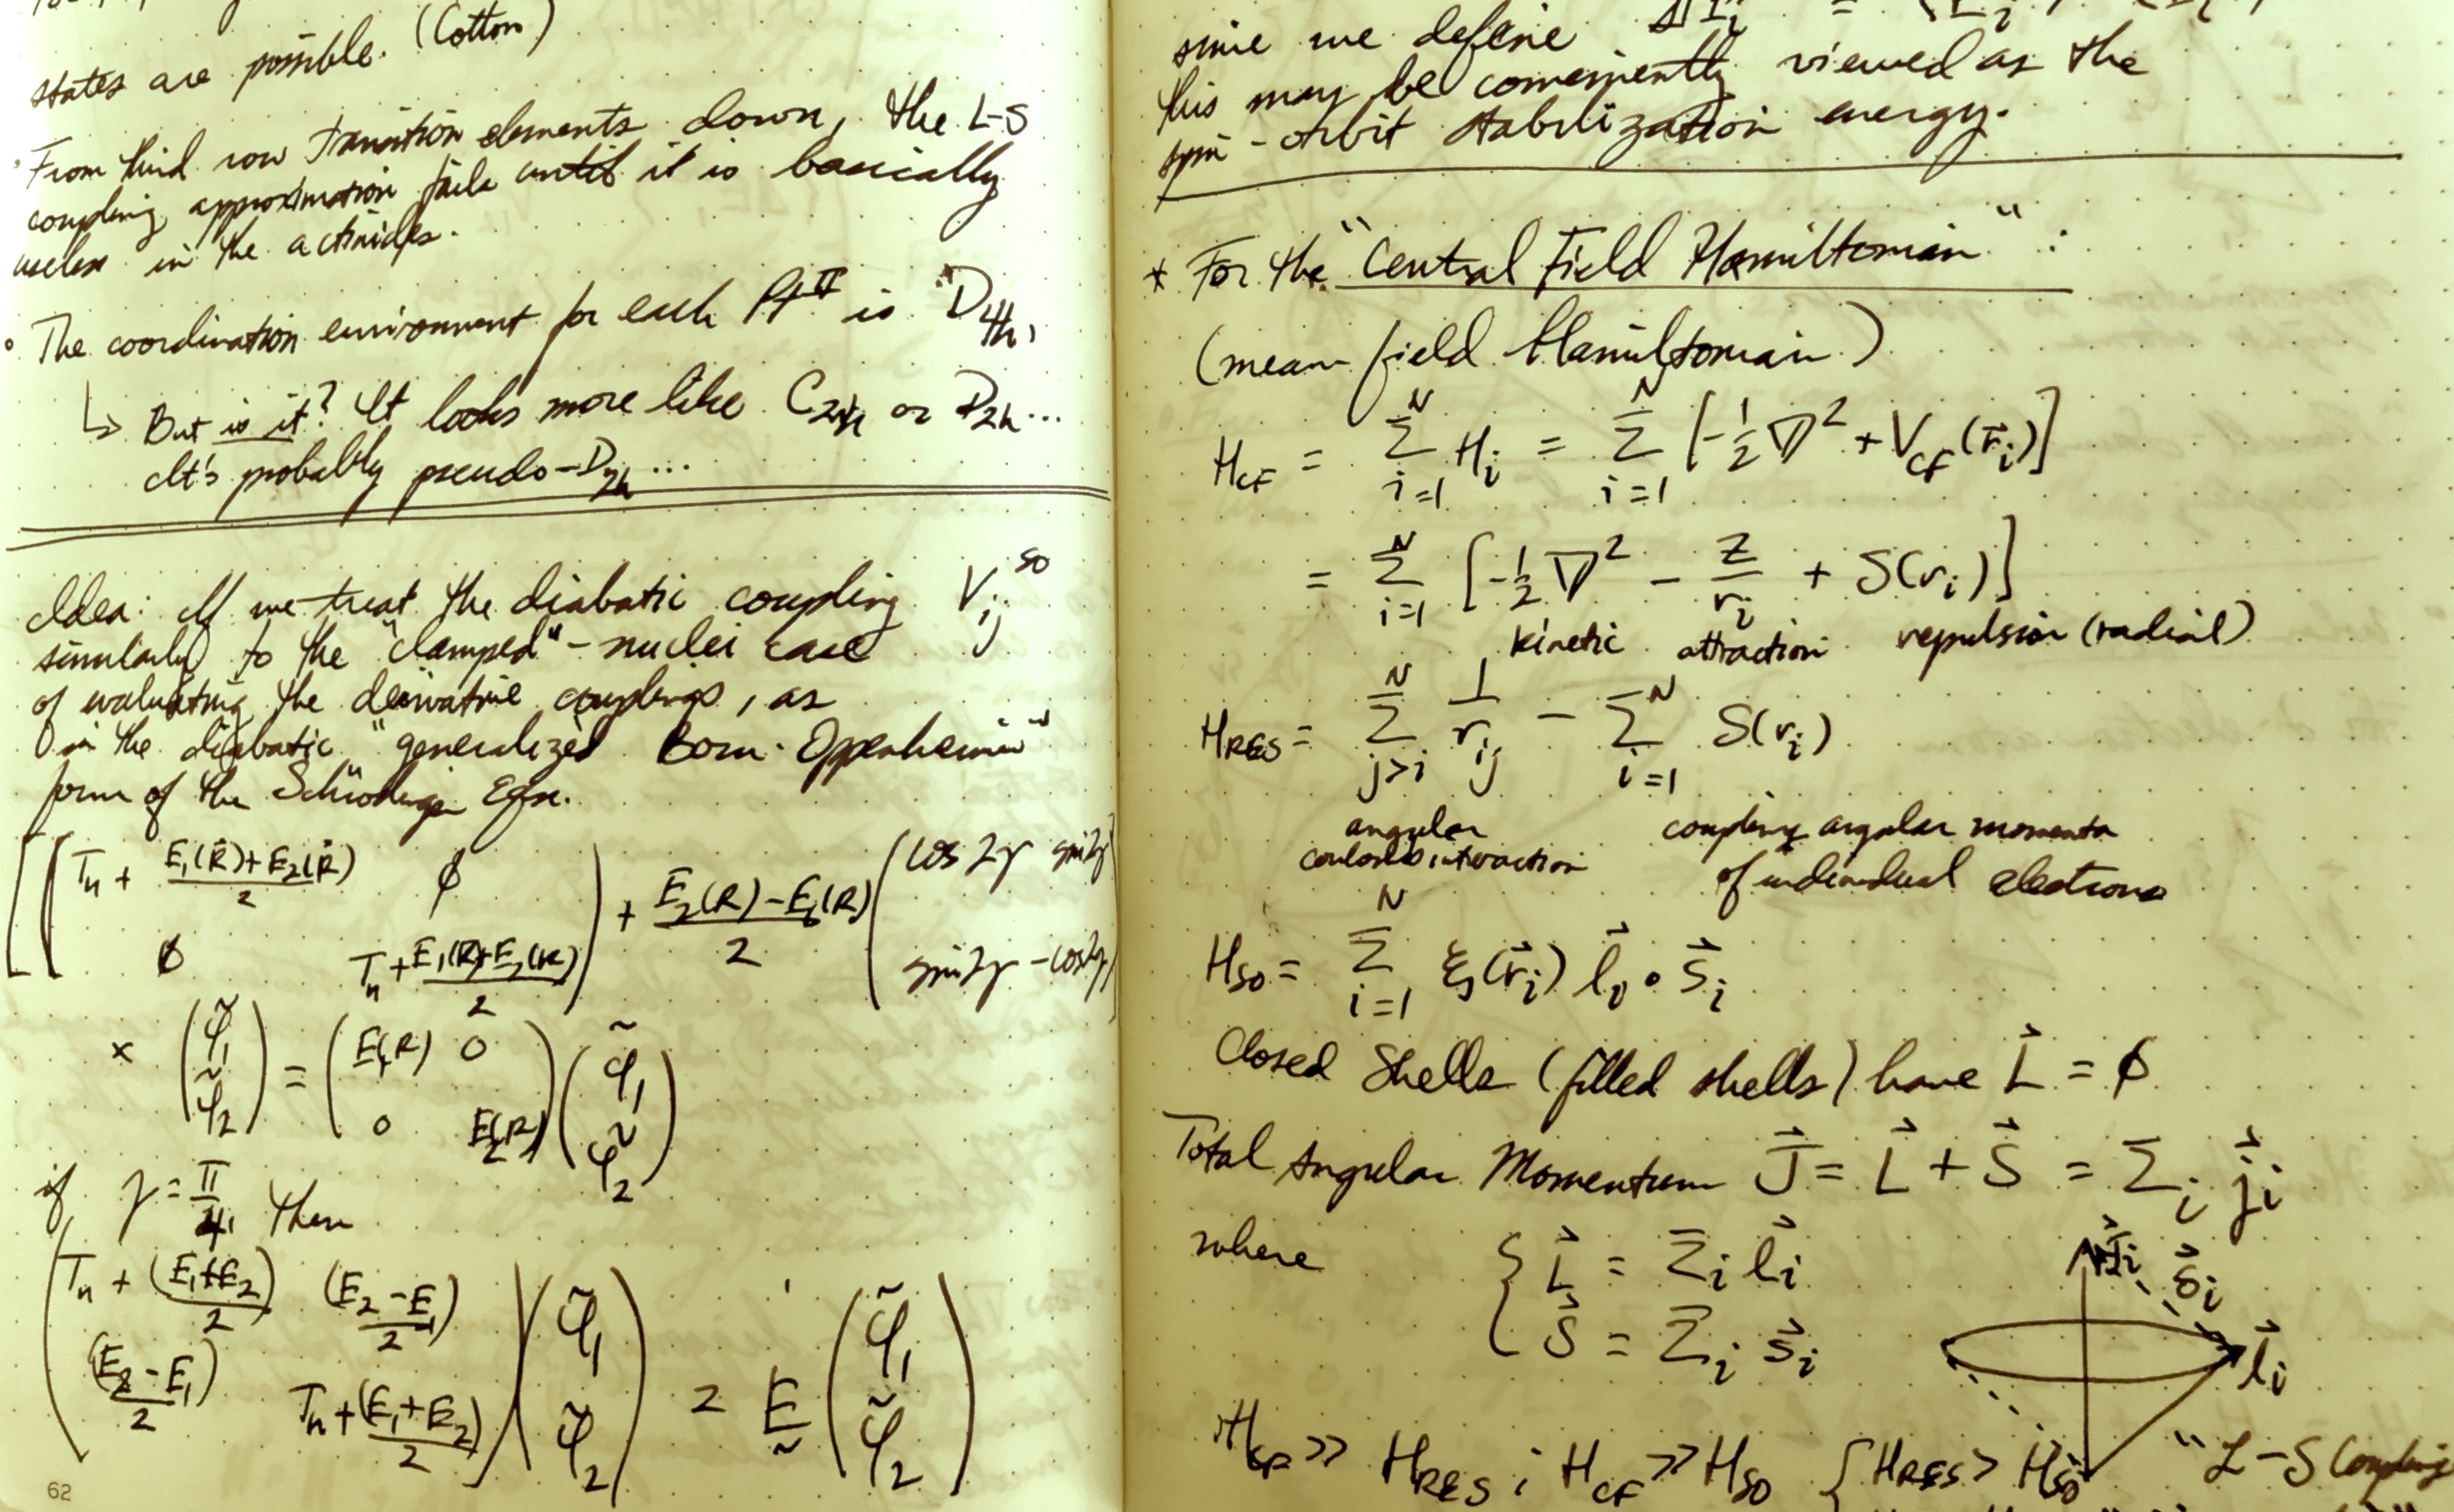 states are possible. (Cotton)
• From third row transition elements down, the L-S
coupling approximation fails until it is basically
useless in the actinides.
• The coordination environment for each Pt^II is "D_4h,
↳ But is it? It looks more like C_2h or D_2h ...
It's probably pseudo-D_2h ...
Idea: If we treat the diabatic coupling V_ij^SO
similarly to the "clamped"-nuclei case
of evaluating the derivative couplings, as
in the diabatic "generalized Born-Oppenheimer"
form of the Schrödinger Eqn.
[ ( T_n + (E_1(R)+E_2(R))/2   ∅
∅   T_n + (E_1(R)+E_2(R))/2 ) + (E_2(R)-E_1(R))/2 ( cos 2γ   sin 2γ
sin 2γ   -cos 2γ
× ( φ̃_1
φ̃_2 ) = ( E_1(R)   0
0   E_2(R) ) ( φ̃_1
φ̃_2 )
if γ = π/4, then
( T_n + (E_1+E_2)/2   (E_2-E_1)/2
(E_2-E_1)/2   T_n + (E_1+E_2)/2 ) ( φ̃_1
φ̃_2 ) = E ( φ̃_1
φ̃_2 )
62
since we define
this may be conveniently viewed as the
spin-orbit stabilization energy.
* For the "Central Field Hamiltonian" :
(mean field Hamiltonian)
H_CF = Σ_{i=1}^N H_i = Σ_{i=1}^N [-1/2 ∇² + V_CF(r⃗_i)]
= Σ_{i=1}^N [-1/2 ∇² - Z/r_i + S(r_i)]
kinetic attraction repulsion (radial)
H_RES = Σ_{j>i}^N 1/r_ij - Σ_{i=1}^N S(r_i)
angular coupling angular momenta
coulomb interaction of individual electrons
H_SO = Σ_{i=1}^N ξ(r⃗_i) l⃗_i • s⃗_i
Closed Shells (filled shells) have L⃗ = ∅
Total Angular Momentum J⃗ = L⃗ + S⃗ = Σ_i j⃗_i
where { L⃗ = Σ_i l⃗_i
S⃗ = Σ_i s⃗_i
j⃗_i s⃗_i
l⃗_i
H_CF >> H_RES ; H_CF >> H_SO { H_RES > H_SO "L-S Coupling